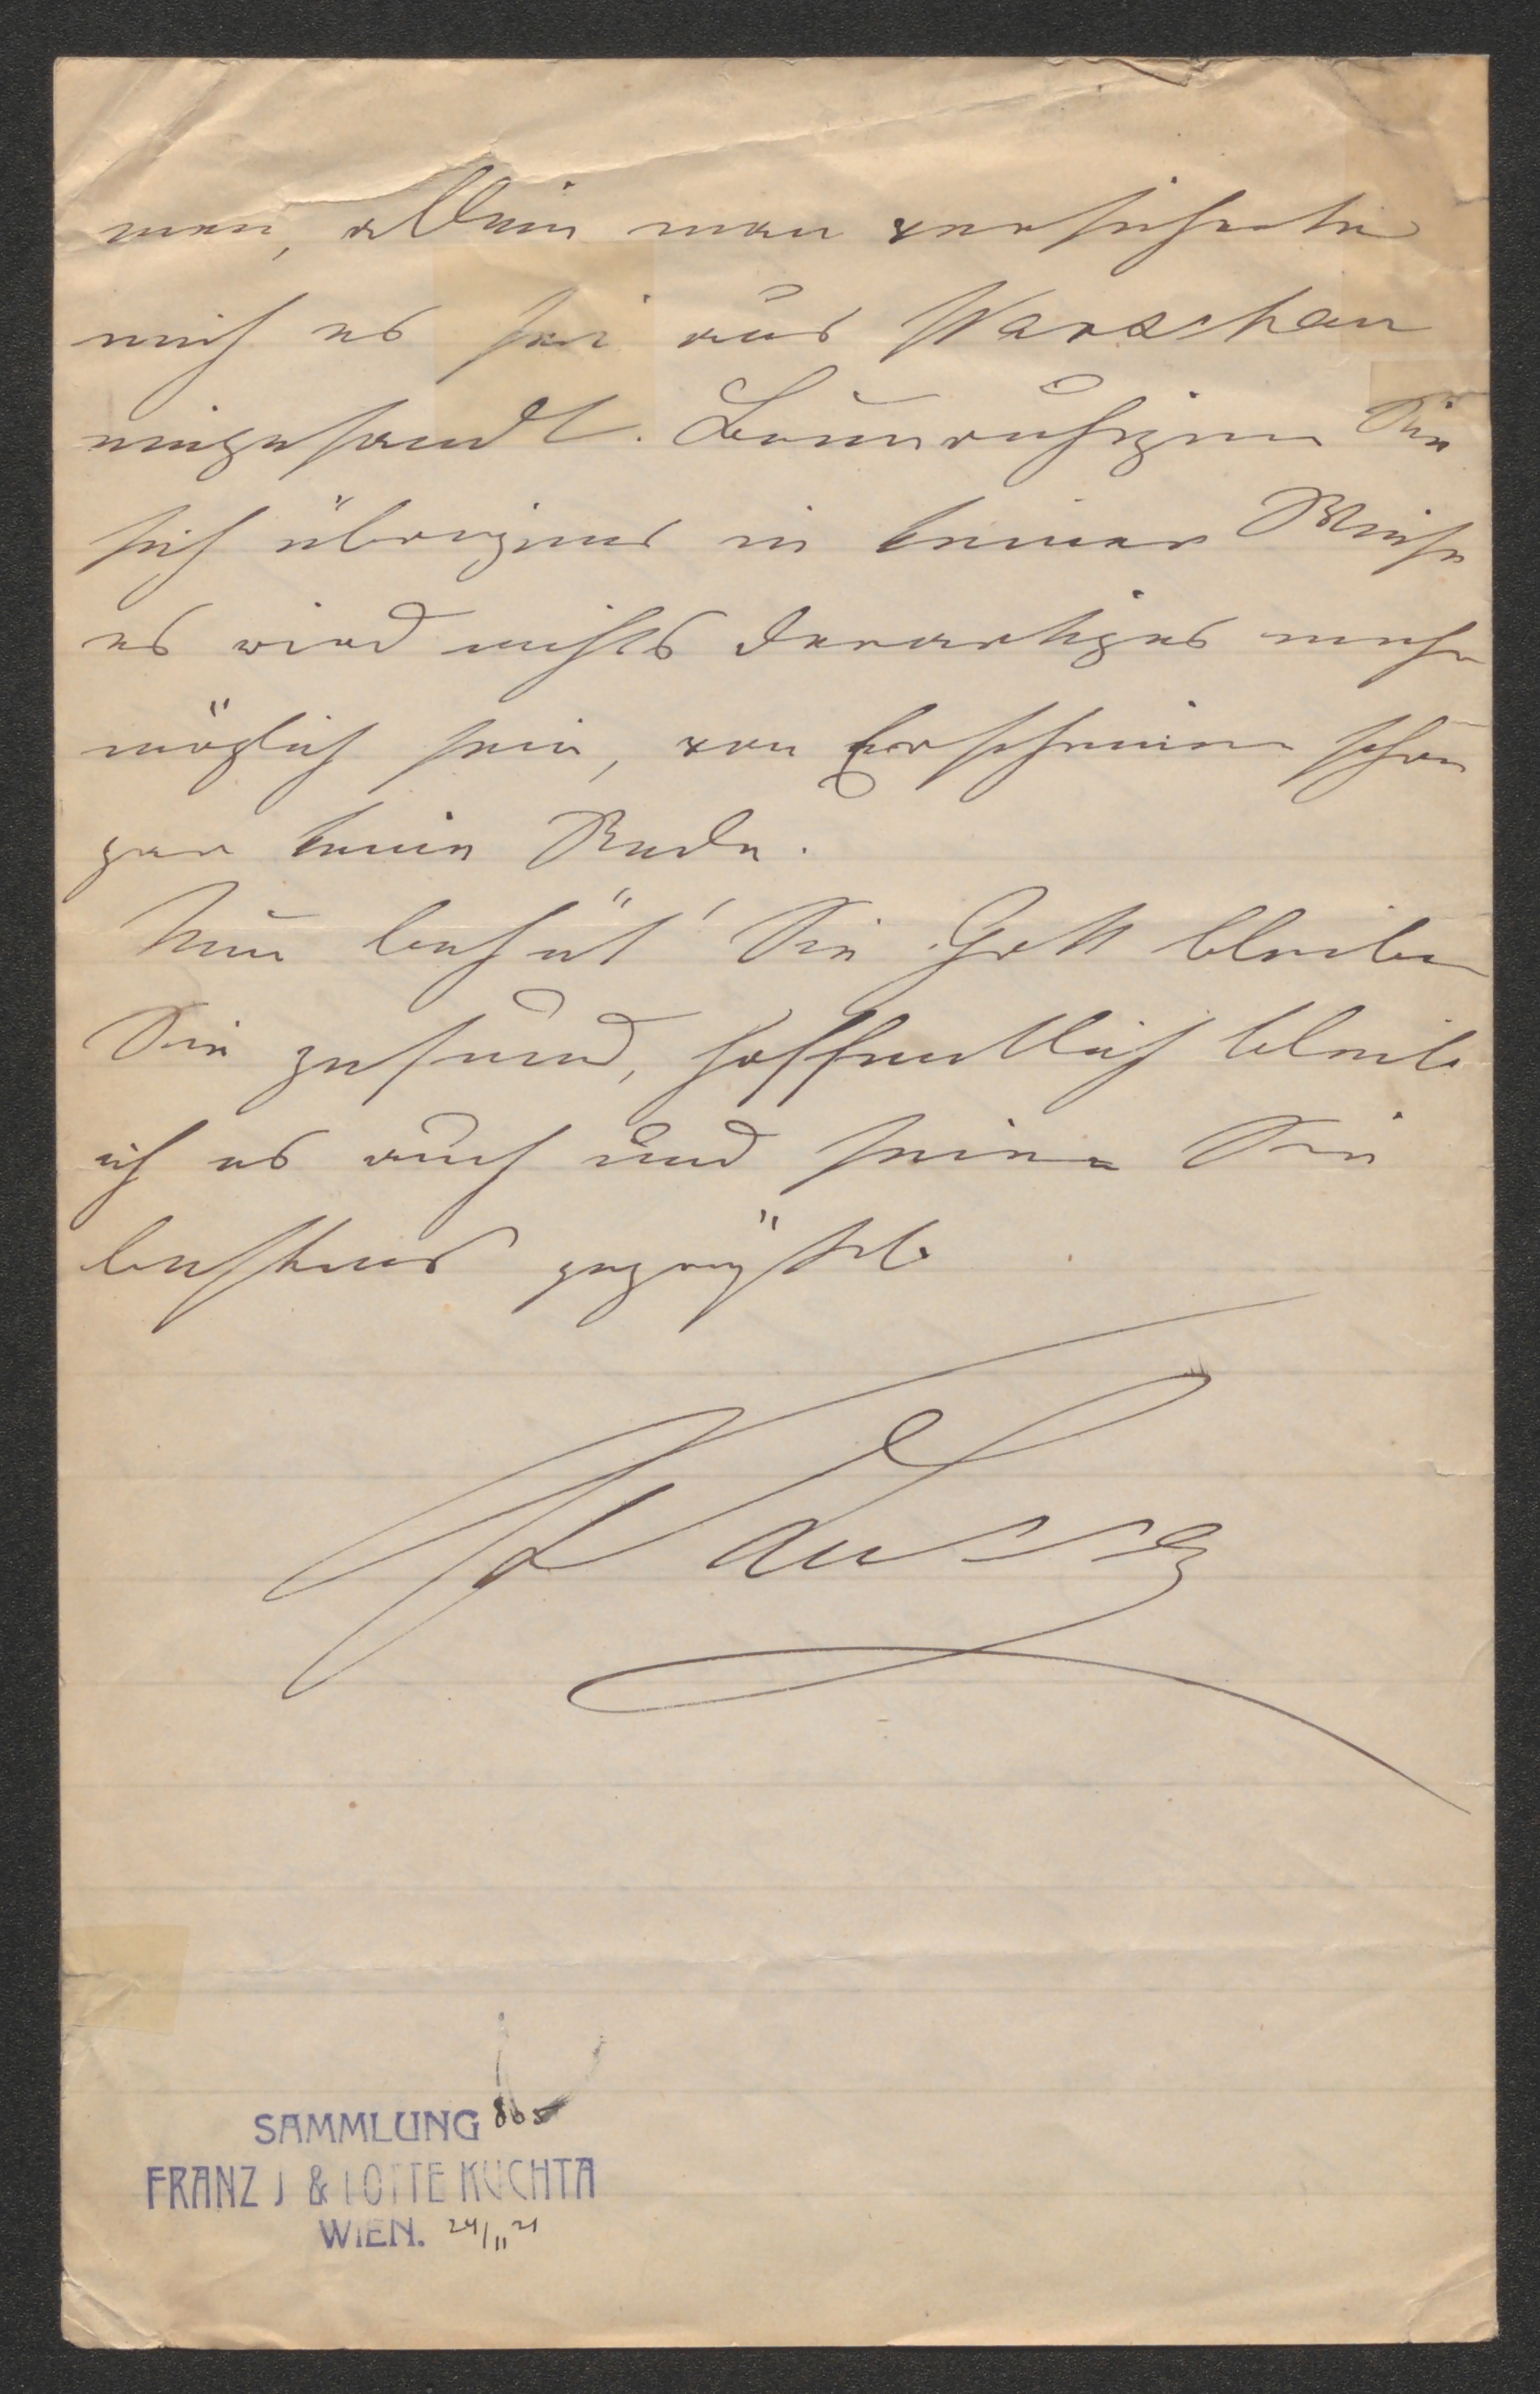 men, allein man versicherte
mich es sei aus Warschau
eingesandt. Beunruhigen Sie
sich übrigens in keiner Weise
es wird nichts derartiges mehr
möglich sein, von Erscheinen schon
gar keine Rede.
Nun behüt' Sie Gott bleiben
Sie gesund, hoffentlich bleibe
ich es auch und seien Sie
bestens gegrüßt
SAMMLUNG 865
FRANZ J & LOTTE KUCHTA
WIEN. 24/II 21